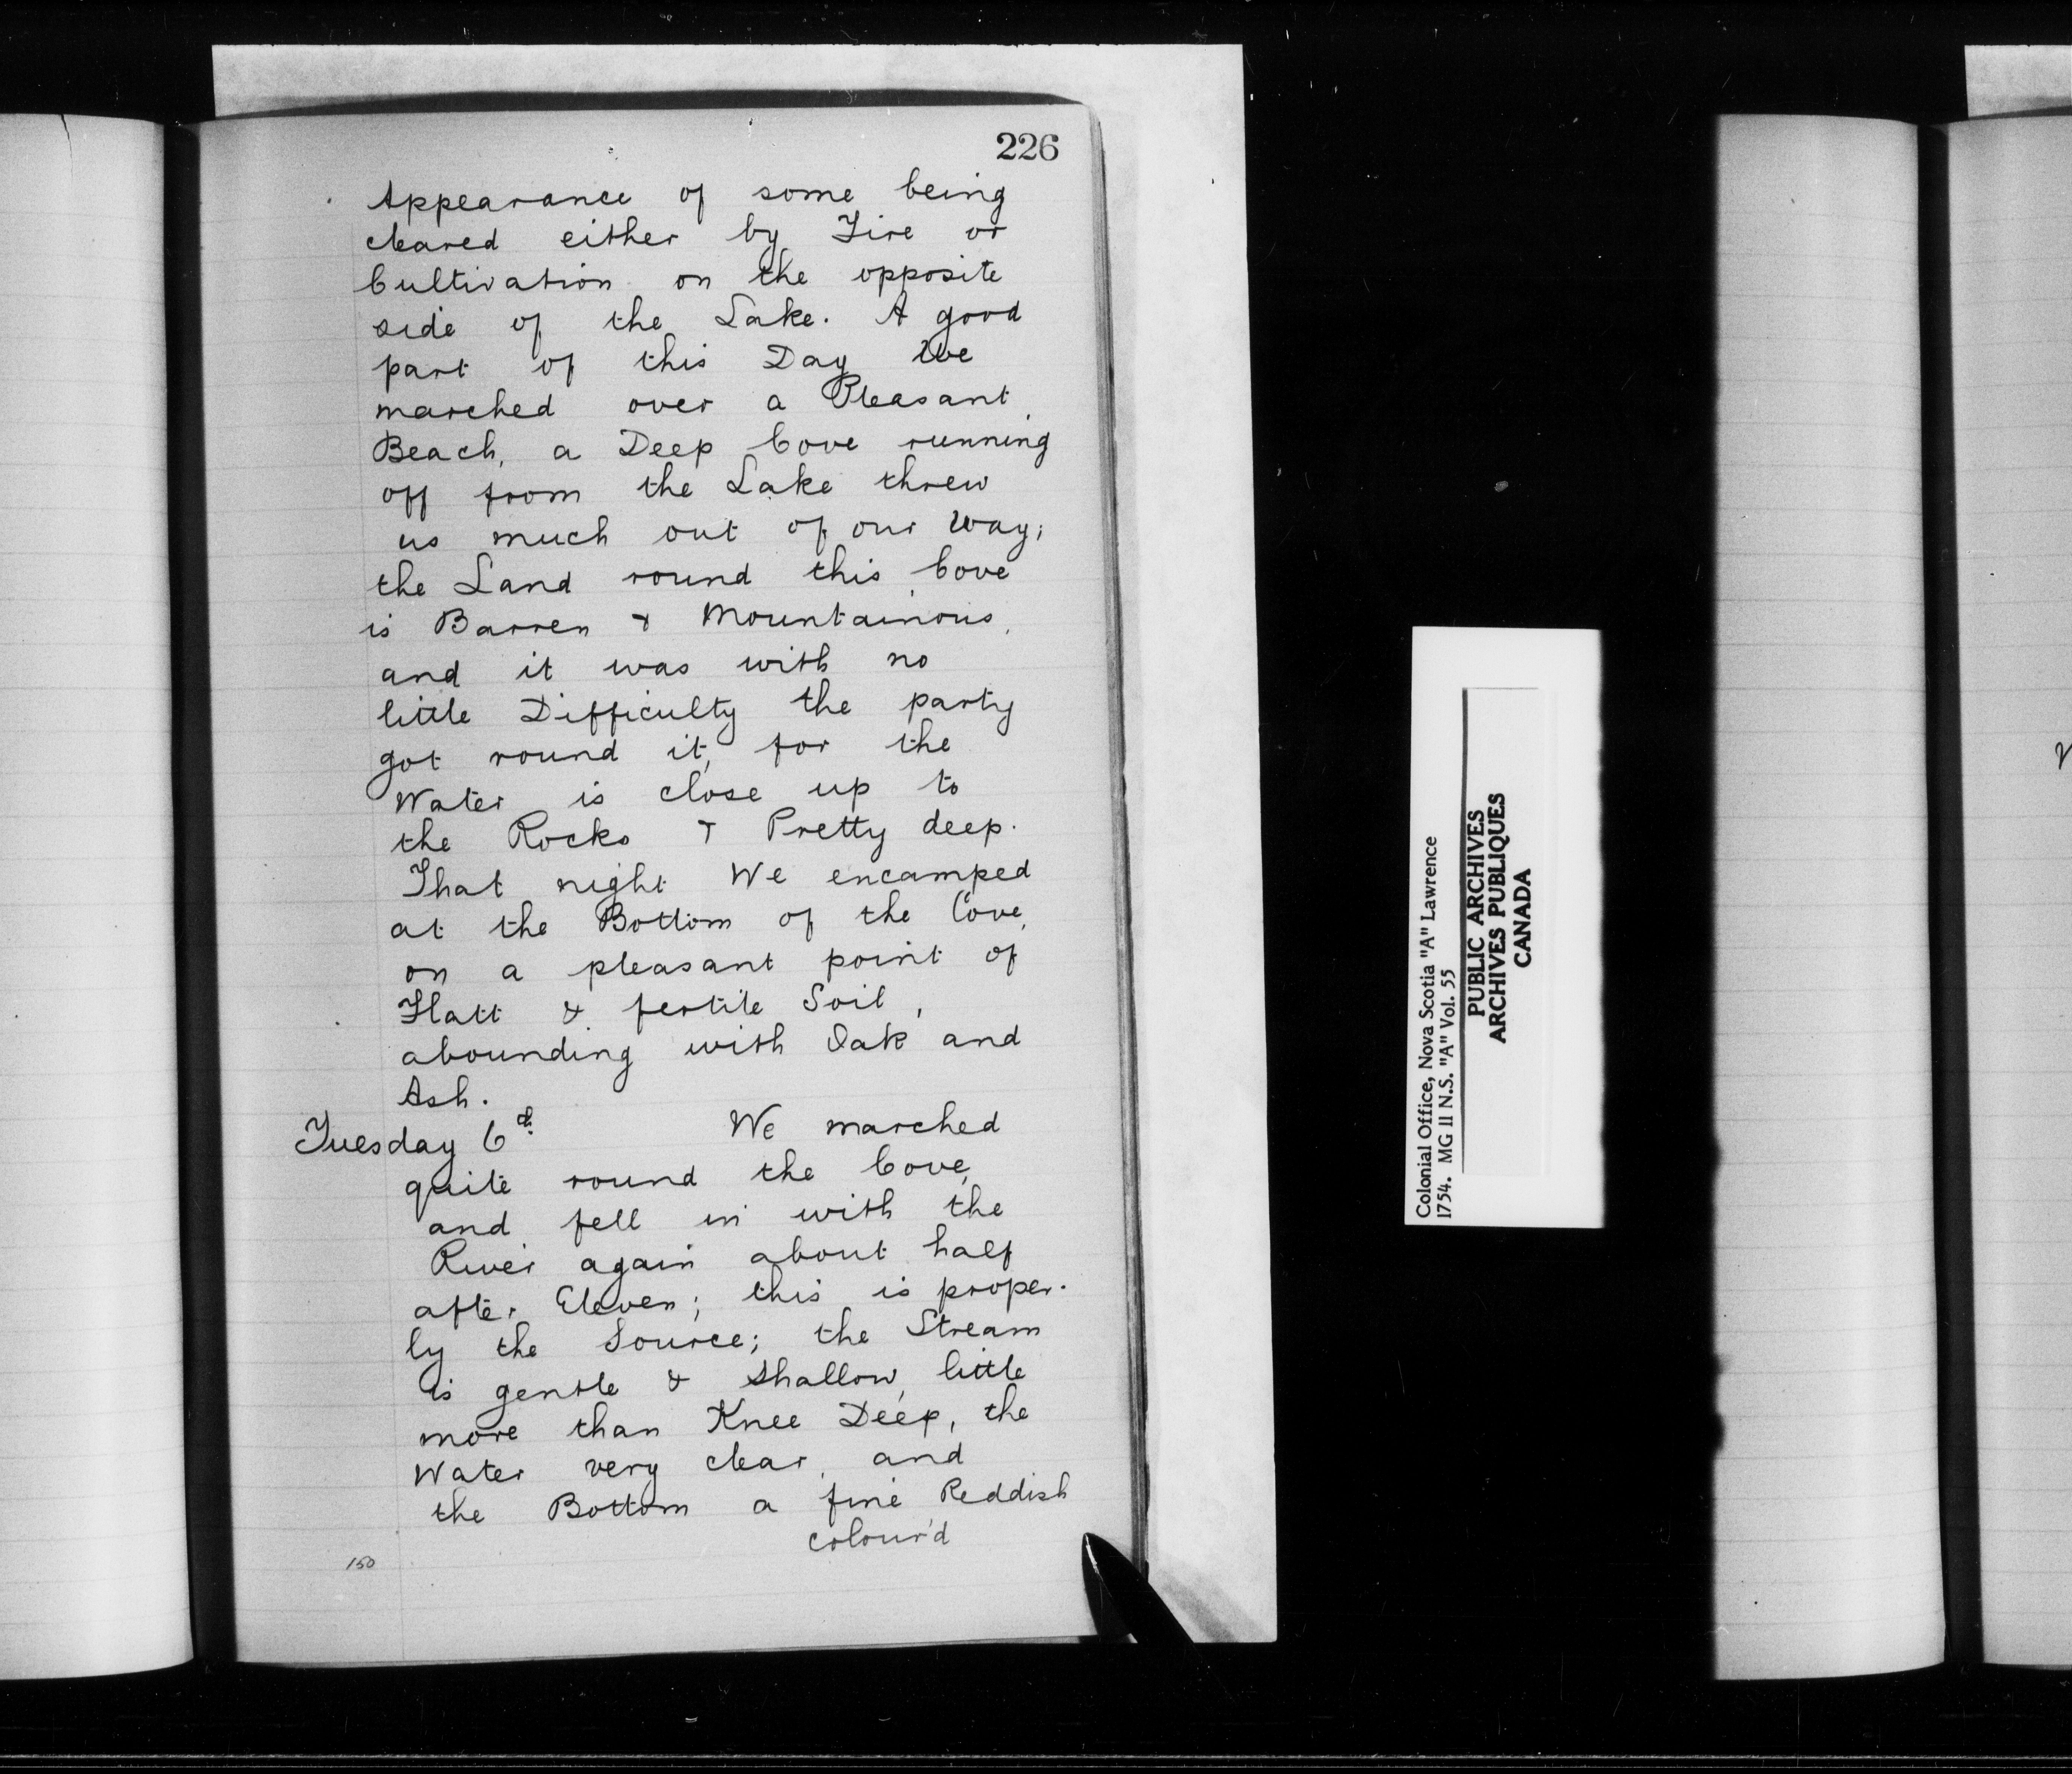 226
Appearance of some being
cleared either by Fire or
Cultivation on the opposite
side of the Lake. A good
part of this Day We
marched over a Pleasant
Beach, a Deep Cove running
off from the Lake threw
us much out of our Way;
the Land round this Cove
is Barren & Mountainous,
and it was with no
little Difficulty the party
got round it, for the
Water is close up to
the Rocks & Pretty deep.
That night We encamped
at the Bottom of the Cove,
on a pleasant point of
Flatt & fertile Soil,
abounding with Oak and
Ash.
Tuesday 6th We marched
quite round the Cove,
and fell in with the
River again about half
after Eleven; this is proper-
ly the Source; the Stream
is gentle & shallow, little
more than Knee Deep, the
Water very clear, and
the Bottom a fine Reddish
colour'd
150
Colonial Office, Nova Scotia "A" Lawrence
1754. MG 11 N.S. "A" Vol. 55
PUBLIC ARCHIVES
ARCHIVES PUBLIQUES
CANADA